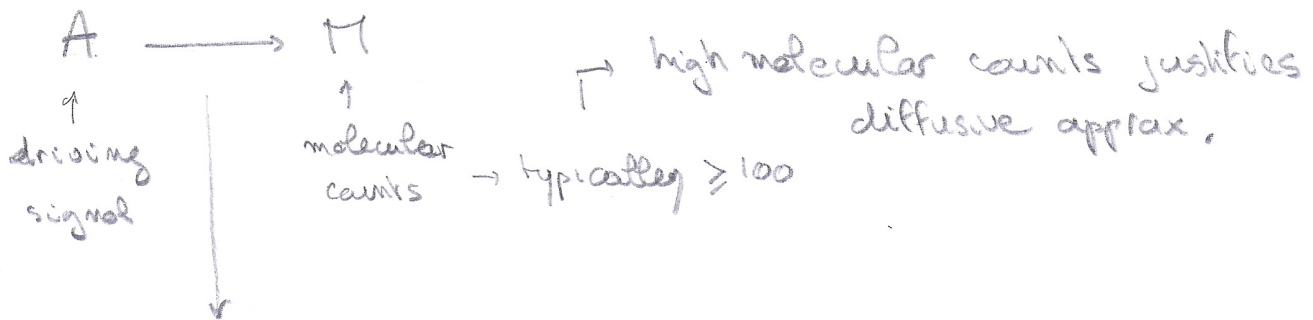 A → M
↑ driving signal
↑ molecular counts → typically ≥ 100
↱ high molecular counts justifies
diffusive approx.